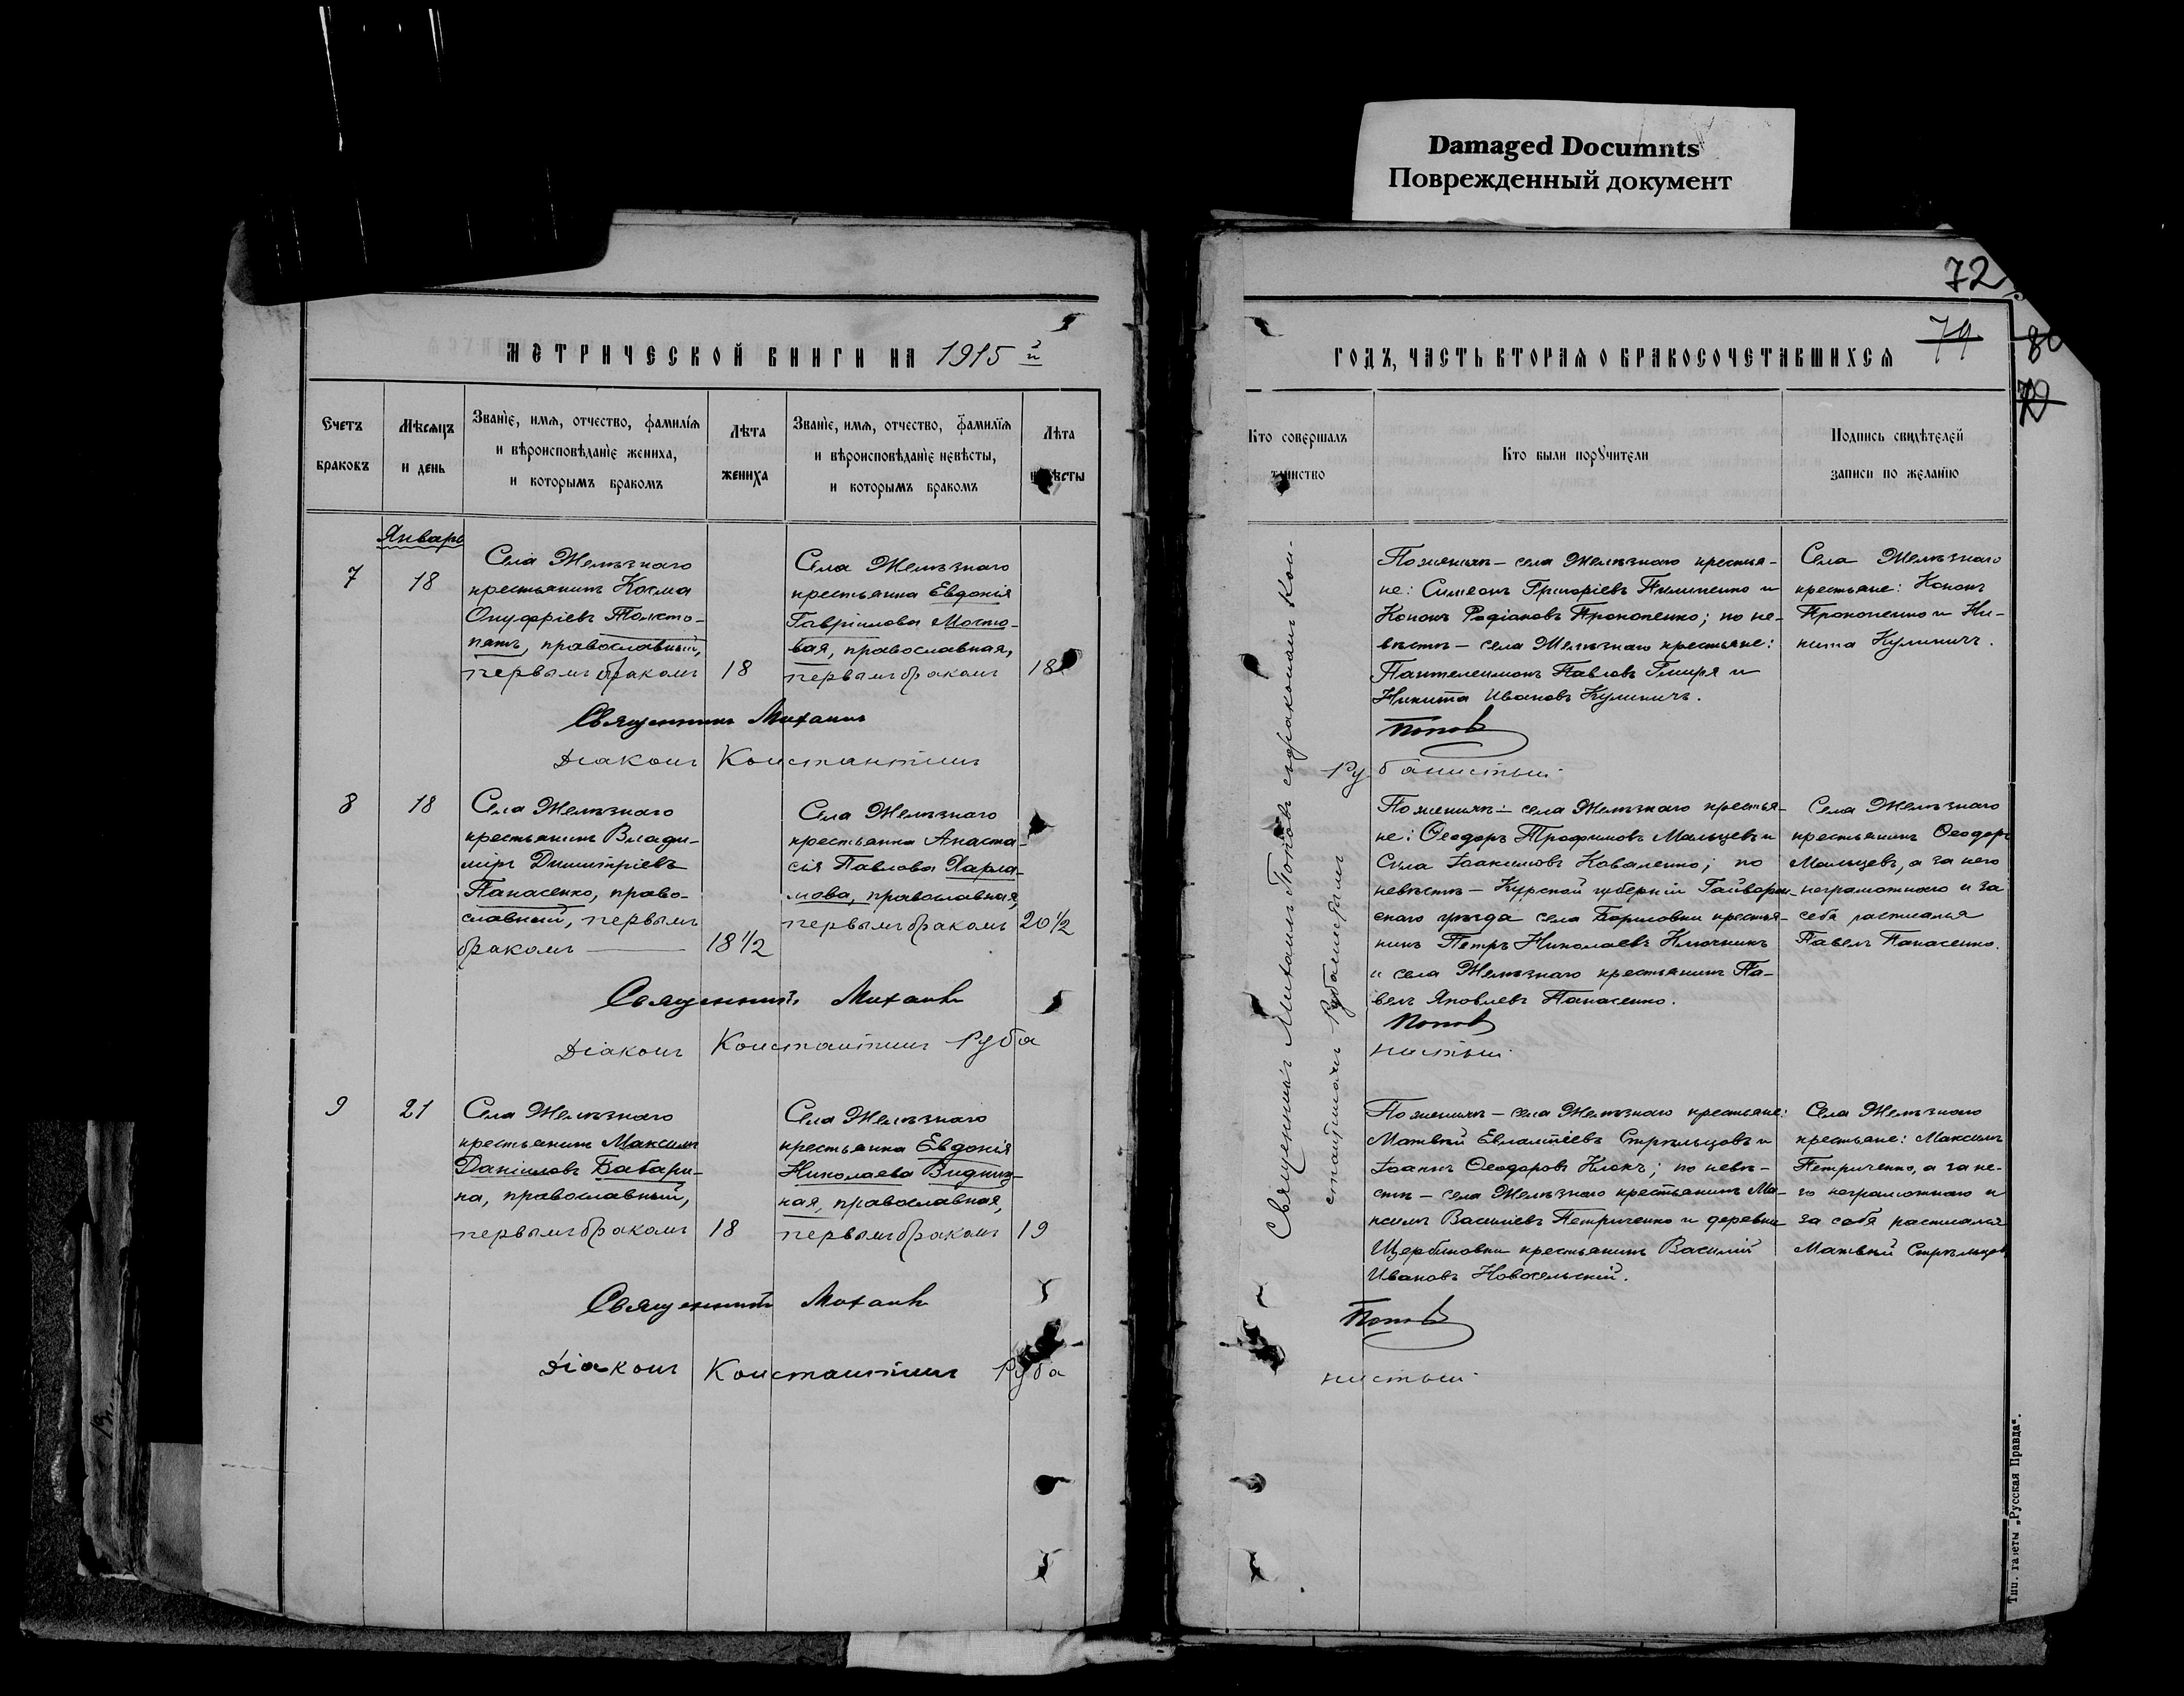 Damaged Documnts
Поврежденный документ
72
79
80
МЕТРИЧЕСКОЙ КНИГИ НА 1915 й
ГОДЪ, ЧАСТЬ ВТОРАЯ О БРАКОСОЧЕТАВШИХСЯ
Счетъ
браковъ
Мѣсяцъ
и день
Званіе, имя, отчество, фамилія
и вѣроисповѣданіе жениха,
и которымъ бракомъ
Лѣта
жениха
Званіе, имя, отчество, фамилія
и вѣроисповѣданіе невѣсты,
и которымъ бракомъ
Лѣта
невѣсты
Кто совершалъ
таинство
Кто были поручители
Подпись свидѣтелей
записи по желанію
Январь
7
18
Села Желѣзнаго
крестьянинъ Косма
Онуфріевъ Толсто-
пятъ, православный,
первымъ бракомъ
18
Села Желѣзнаго
крестьянка Евдокія
Гавріилова Мосто-
вая, православная,
первымъ бракомъ
18
Священникъ Михаилъ
Діаконъ Константинъ
Священникъ Михаилъ Поповъ съ діакономъ Кон-
стантиномъ Рубанистымъ
По женихѣ – села Желѣзнаго крестья-
не: Симеонъ Григоріевъ Пилипенко и
Кононъ Родіановъ Прокопенко; по не-
вѣстѣ – села Желѣзнаго крестьяне:
Пантелеимонъ Павловъ Гмиря и
Никита Ивановъ Кулиничъ.
Поповъ
Рубанистый
Села Желѣзнаго
крестьяне: Кононъ
Прокопенко и Ни-
кита Кулиничъ.
8
18
Села Желѣзнаго
крестьянинъ Влади-
міръ Димитріевъ
Панасенко, право-
славный, первымъ
бракомъ
18 1/2
Села Желѣзнаго
крестьянка Анаста-
сія Павлова Харла-
мова, православная,
первымъ бракомъ
20 1/2
Священникъ Михаилъ
Діаконъ Константинъ Руба
По женихѣ – села Желѣзнаго крестья-
не: Ѳеодоръ Трофимовъ Мальцевъ и
Сила Іоакимовъ Коваленко; по
невѣстѣ – Курской губерніи Гайворон-
скаго уѣзда села Борисовки крестья-
нинъ Петръ Николаевъ Ключникъ
и села Желѣзнаго крестьянинъ Па-
велъ Яковлевъ Панасенко.
Поповъ
нистый
Села Желѣзнаго
крестьянинъ Ѳеодоръ
Мальцевъ, а за него
неграмотнаго и за
себя расписался
Павелъ Панасенко.
9
21
Села Желѣзнаго
крестьянинъ Максимъ
Даніиловъ Бабари-
ка, православный,
первымъ бракомъ
18
Села Желѣзнаго
крестьянка Евдокія
Николаева Видмиц-
кая, православная,
первымъ бракомъ
19
Священникъ Михаилъ
Діаконъ Константинъ Руба
По женихѣ – села Желѣзнаго крестьяне:
Матвѣй Евлампіевъ Стрѣльцовъ и
Іоаннъ Ѳеодоровъ Клокъ; по невѣ-
стѣ – села Желѣзнаго крестьянинъ Ма-
ксимъ Васильевъ Петриченко и деревни
Щербиновки крестьянинъ Василій
Ивановъ Новосельскій.
Поповъ
нистый
Села Желѣзнаго
крестьяне: Максимъ
Петриченко, а за не-
го неграмотнаго и
за себя расписался
Матвѣй Стрѣльцовъ
Тип. газеты „Русская Правда".